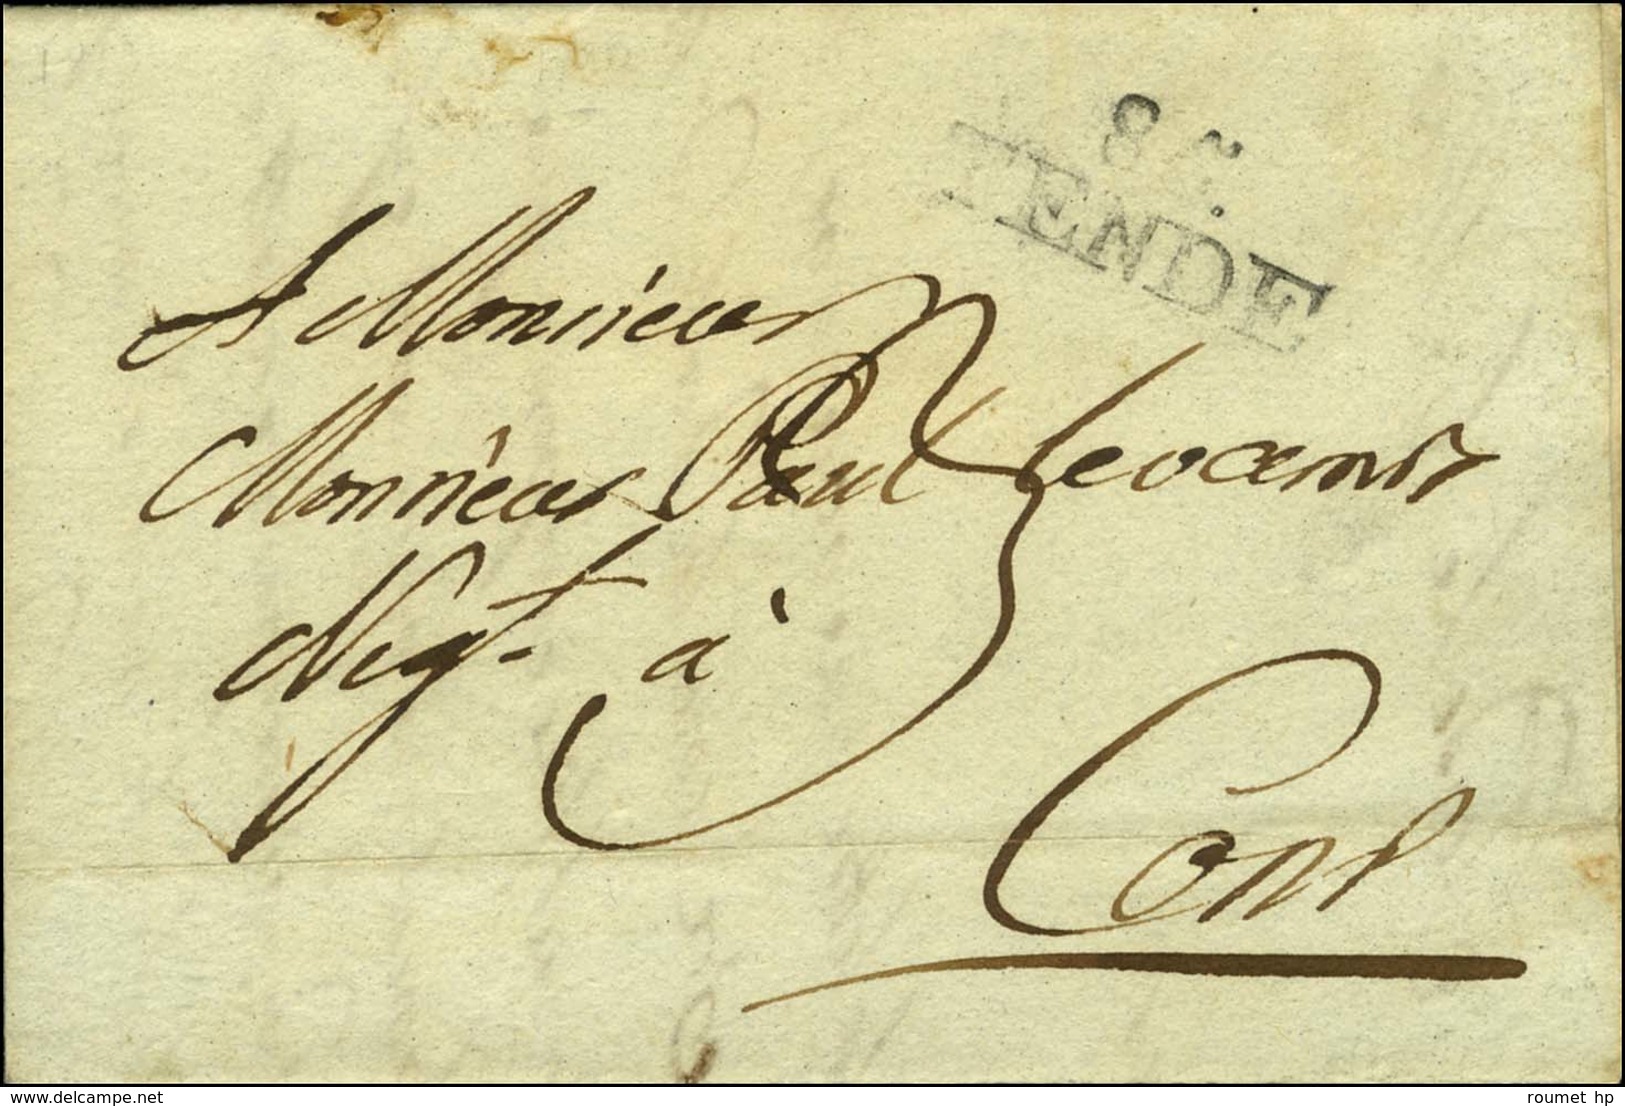 85.
TENDE
A Monsieur
Monsieur Paul
Negt. à
Coni
www.delcampe.net
roumet hp